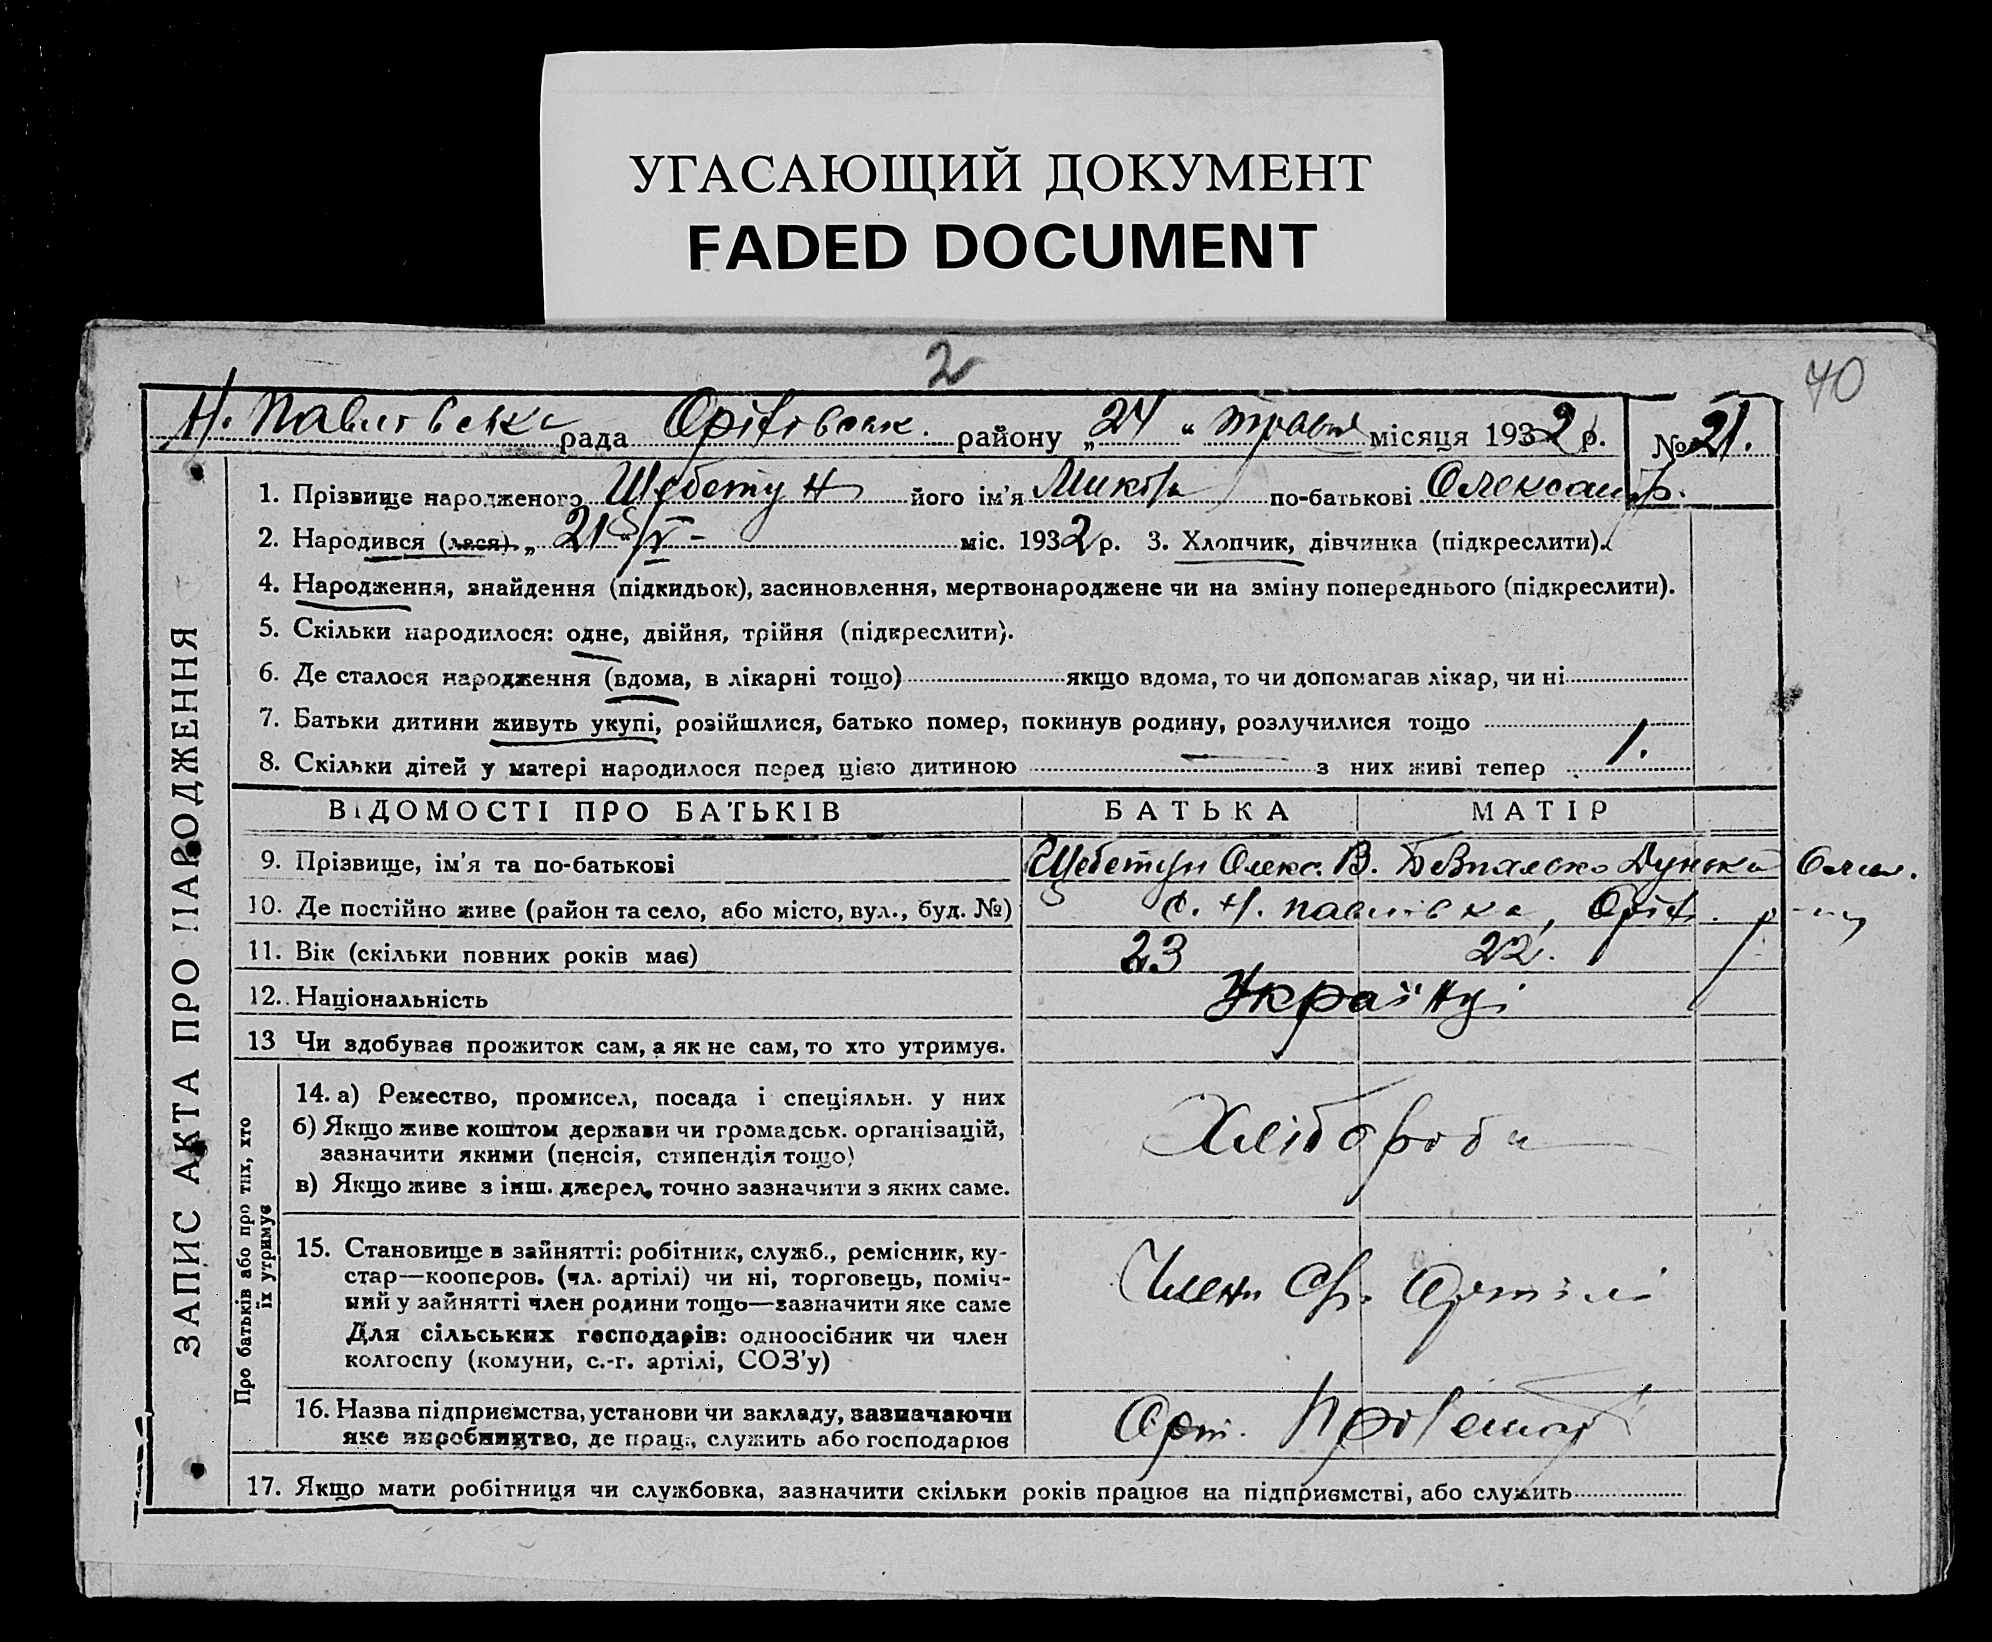 УГАСАЮЩИЙ ДОКУМЕНТ
FADED DOCUMENT
2
70
Н. Павлівська рада Орітівськ. району „24" травня місяця 1932 р. № 21.
1. Прізвище народженого Щебетун його ім'я Микола по-батькові Олександр.
2. Народився (лася) „21"/V- міс. 1932 р. 3. Хлопчик, дівчинка (підкреслити).
4. Народження, знайдення (підкидьок), засиновлення, мертвонароджене чи на зміну попереднього (підкреслити).
5. Скільки народилося: одне, двійня, трійня (підкреслити).
6. Де сталося народження (вдома, в лікарні тощо) якщо вдома, то чи допомагав лікар, чи ні
7. Батьки дитини живуть укупі, розійшлися, батько помер, покинув родину, розлучилися тощо
8. Скільки дітей у матері народилося перед цією дитиною — з них живі тепер 1.
ВІДОМОСТІ ПРО БАТЬКІВ БАТЬКА МАТІР
9. Прізвище, ім'я та по-батькові Щебетун Олекс. В. Дунька
10. Де постійно живе (район та село, або місто, вул., буд. №) с. Н. Павлівка,
11. Вік (скільки повних років має) 23 22.
12. Національність Українці
13 Чи здобував прожиток сам, а як не сам, то хто утримує.
14. а) Ремество, промисел, посада і спеціяльн. у них
б) Якщо живе коштом держави чи громадськ. організацій,
зазначити якими (пенсія, стипендія тощо)
в) Якщо живе з інш. джерел, точно зазначити з яких саме.
Хлібороби
15. Становище в зайнятті: робітник, служб., ремісник, ку-
стар—кооперов. (чл. артілі) чи ні, торговець, поміч-
ний у зайнятті член родини тощо—зазначити яке саме
Для сільських господарів: одноосібник чи член
колгоспу (комуни, с.-г. артілі, СОЗ'у)
Члени Артілі
16. Назва підприємства, установи чи закладу, зазначаючи
яке виробництво, де прац., служить або господарює
Арт.
17. Якщо мати робітниця чи службовка, зазначити скільки років працює на підприємстві, або служить
ЗАПИС АКТА ПРО НАРОДЖЕННЯ
Про батьків або про тих, хто
їх утримує